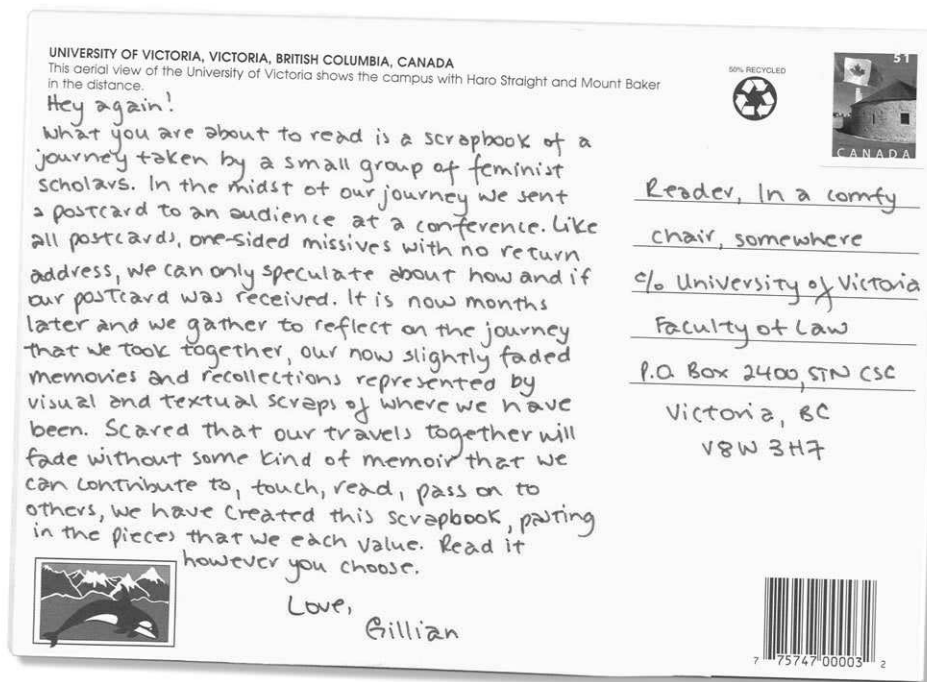 UNIVERSITY OF VICTORIA, VICTORIA, BRITISH COLUMBIA, CANADA
This aerial view of the University of Victoria shows the campus with Haro Straight and Mount Baker
in the distance.
Hey again!
What you are about to read is a scrapbook of a
journey taken by a small group of feminist
scholars. In the midst of our journey we sent
a postcard to an audience at a conference. Like
all postcards, one-sided missives with no return
address, we can only speculate about how and if
our postcard was received. It is now months
later and we gather to reflect on the journey
that we took together, our now slightly faded
memories and recollections represented by
visual and textual scraps of where we have
been. Scared that our travels together will
fade without some kind of memoir that we
can contribute to, touch, read, pass on to
others, we have created this scrapbook, pasting
in the pieces that we each value. Read it
however you choose.
Love,
Gillian
50% RECYCLED
51
CANADA
Reader, In a comfy
chair, somewhere
c/o University of Victoria
Faculty of Law
P.O. Box 2400, STN CSC
Victoria, BC
V8W 3H7
7 75747 00003 2